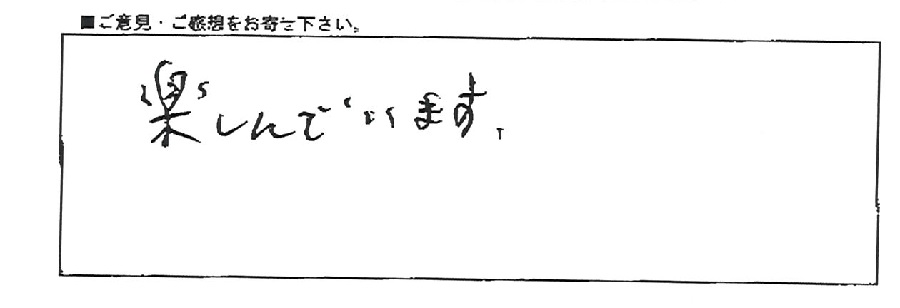 ■ご意見・ご感想をお寄せ下さい。
楽しんでいます。